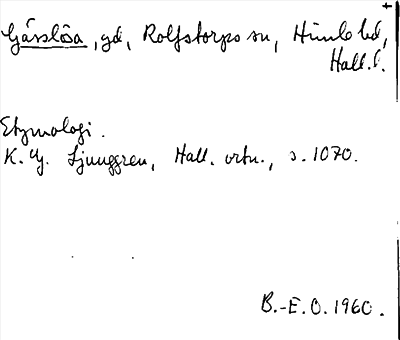 Gårslösa, gd, Rolfstorps sn, Himle hd,
Hall. l.
Etymologi.
K. G. Ljunggren, Hall. ortn., s. 1070.
B.-E. O. 1960.